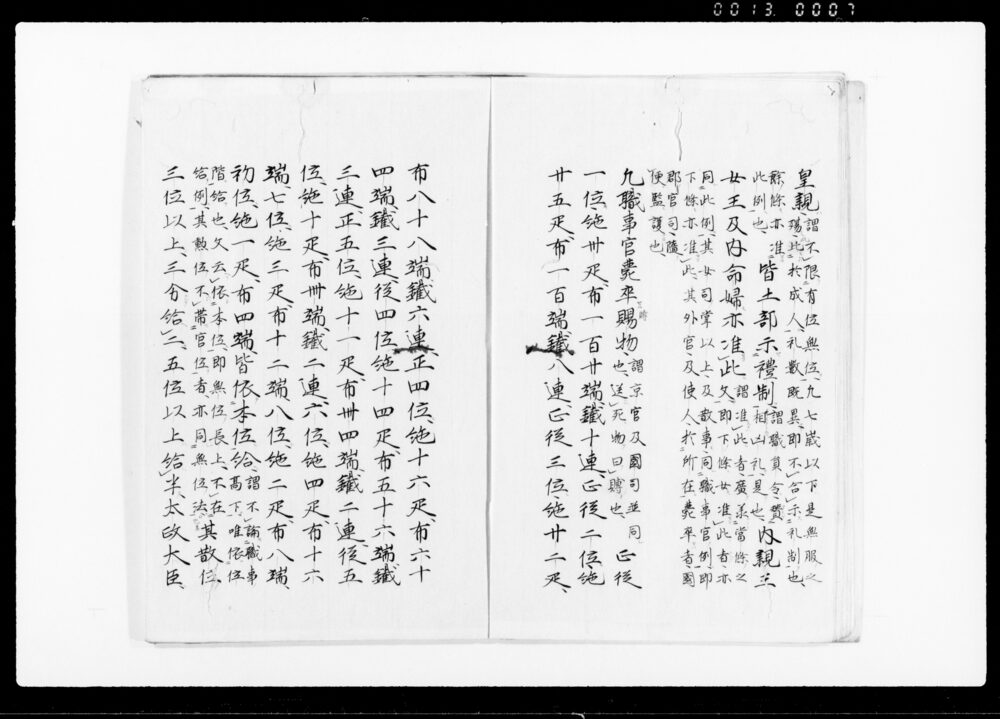 0013 0007
皇親謂不限有位無位凡七歳以下是無服之
殤比於成人礼數既異即不合示礼制也
餘條亦准
此例也皆土部示禮制謂職員令賛
相凶礼是也内親王
女王及内命婦亦准此謂准此者廣兼當條之
文即下條女准此者亦
同此例其女司掌以上及散事同職事官例即
下條亦准此其外官及使人於所在薨卒者國
郡官司隨
便監護也
凡職事官薨卒賜物謂京官及國司並同
也送死物曰賻也正従
一位絁卅疋布一百廿端鐵十連正従二位絁
廿五疋布一百端鐵八連正従三位絁廿二疋
布八十八端鐵六連正四位絁十六疋布六十
四端鐵三連従四位絁十四疋布五十六端鐵
三連正五位絁十一疋布卌四端鐵二連従五
位絁十疋布卌端鐵二連六位絁四疋布十六
端七位絁三疋布十二端八位絁二疋布八端
初位絁一疋布四端皆依本位給謂不論職事
高下唯依位
階給也文云依本位即無位長上不在
給例其勲位不帶官位者亦同無位法其散位
三位以上三分給二五位以上給半太政大臣